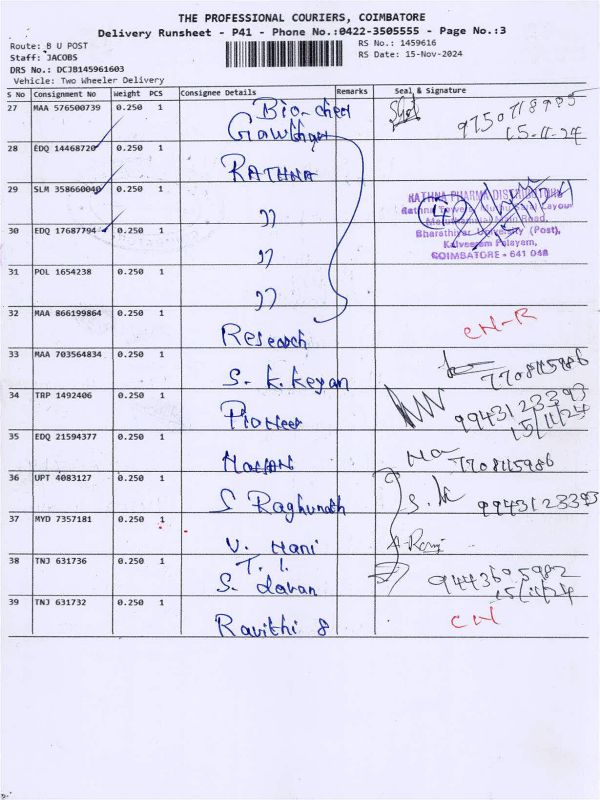 THE PROFESSIONAL COURIERS, COIMBATORE
Delivery Runsheet - P41 - Phone No.:0422-3505555 - Page No.:3
Route: B U POST
RS No.: 1459616
Staff: JACOBS
RS Date: 15-Nov-2024
DRS No.: DCJB145961603
Vehicle: Two Wheeler Delivery
S No Consignment No Weight PCS Consignee Details Remarks Seal & Signature
27 MAA 576500739 0.250 1 Bio-chem
9750718985
15-11-24
28 EDQ 14468720 0.250 1 RATHNA
29 SLM 358660040 0.250 1 "
RATHNA PHARMA DISTRIBUTORS
Rathna Towers,
Main Road,
Bharathiyar University (Post),
Kalveeram Palayam,
COIMBATORE - 641 046
30 EDQ 17687794 0.250 1 "
31 POL 1654238 0.250 1 "
32 MAA 866199864 0.250 1 Research CN-R
33 MAA 703564834 0.250 1 S. K. Keyan 7708115986
34 TRP 1492406 0.250 1 Pioneer 9943123393
15/11/24
35 EDQ 21594377 0.250 1 7708115986
36 UPT 4083127 0.250 1 S Raghunath S. K 9943123393
37 MYD 7357181 0.250 1 V. Mani
38 TNJ 631736 0.250 1 T. I.
S. 9443605982
15/11/24
39 TNJ 631732 0.250 1 Ravithi S CN